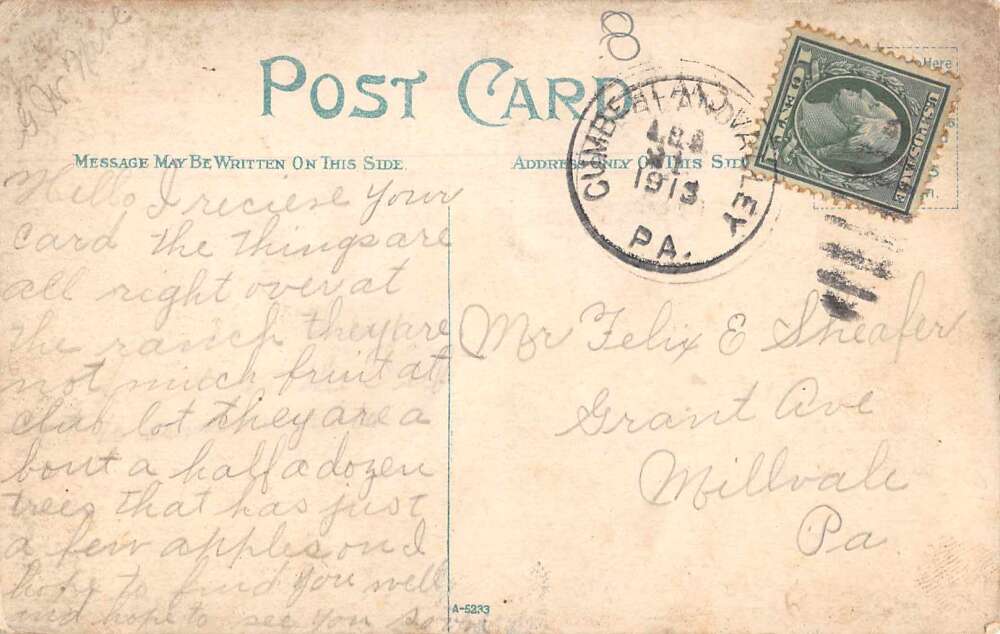 8
POST CARD
MESSAGE MAY BE WRITTEN ON THIS SIDE
ADDRESS ONLY ON THIS SIDE
Here
CUMBERLAND VALLEY
1913
PA.
U.S. POSTAGE
Hello I reciese your
card the things are
all right over at
the ranch they are
not much fruit at
club lot they are a
bout a half a dozen
trees that has just
a few apples on I
hope to find you well
and hope to see you soon
Mr Felix E Sheafer
Grant Ave
Millvale
Pa
A-5233